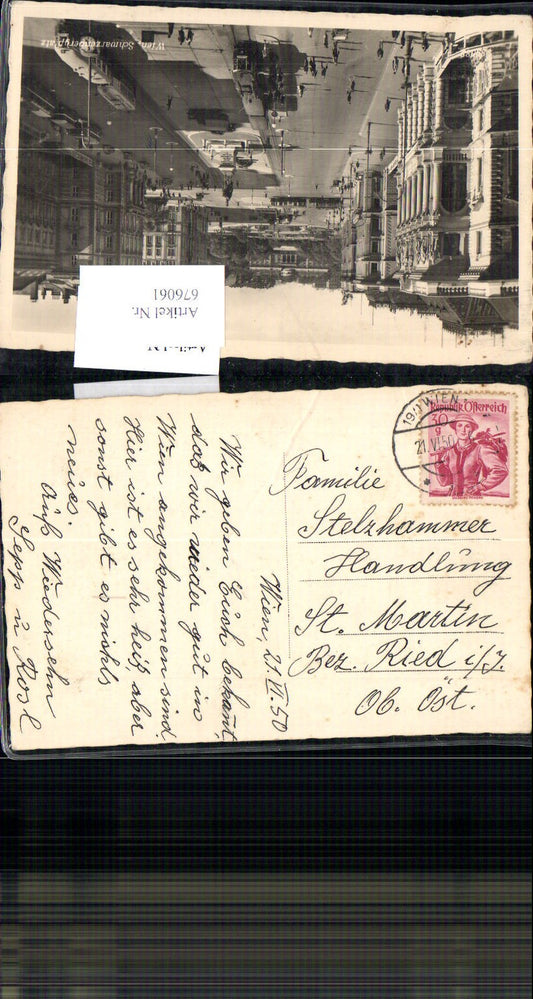 Wien, Schwarzenbergplatz
Artikel Nr.
676061
190 WIEN
21.VI.50
Republik Österreich
30
g
Wien, 21.VI.50
Wir geben Euch bekannt,
daß wir wieder gut in
Wien angekommen sind.
Hier ist es sehr heiß aber
sonst gibt es nichts
neues.
Auf Wiedersehn
Sepp u Rosl
Familie
Stelzhammer
Handlung
St. Martin
Bez. Ried i/J.
Ob. Öst.